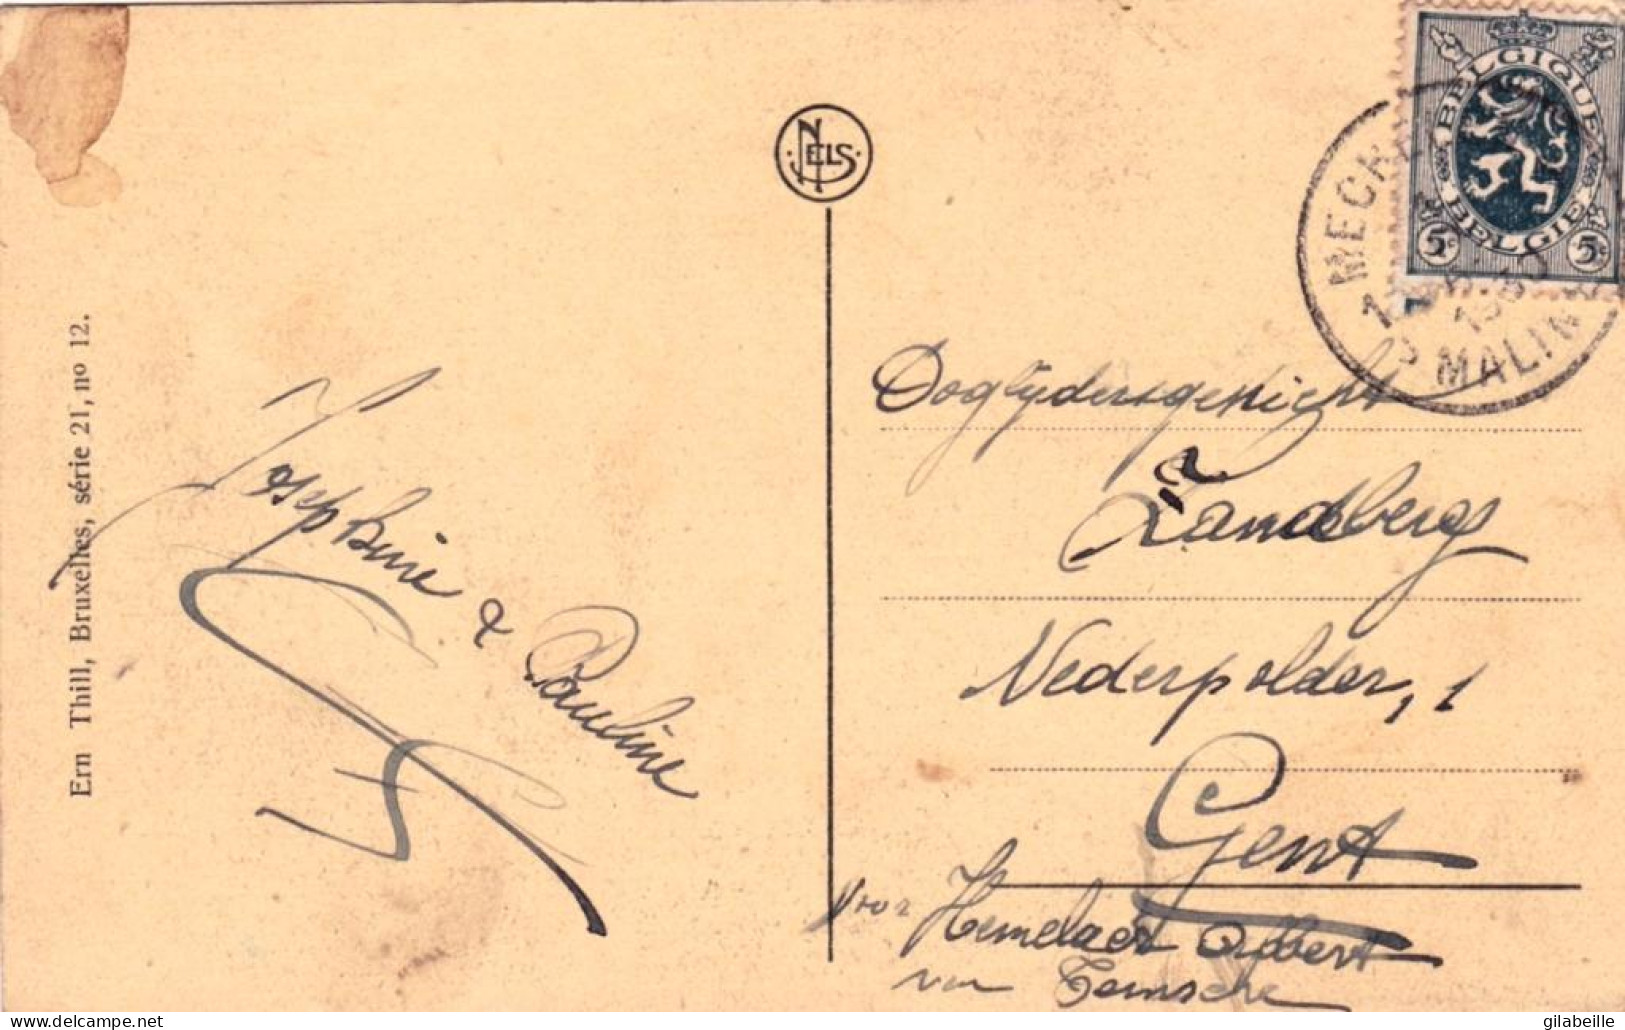 Ern Thill, Bruxelles, série 21, no 12.
NELS
Josephine & Pauline
BELGIQUE
BELGIE
5c 5c
MECH
MALIN
Ooglijdersgesticht
Zandberg
Nederpolder, 1
Gent
Voor Hemelaer Albert
van Temsche
© delcampe.net
gilabeille